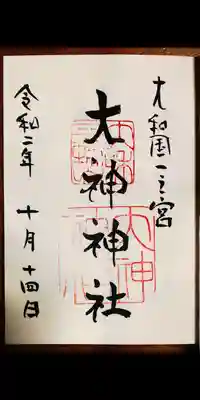 大和國一之宮
大神神社
令和二年 十月十四日